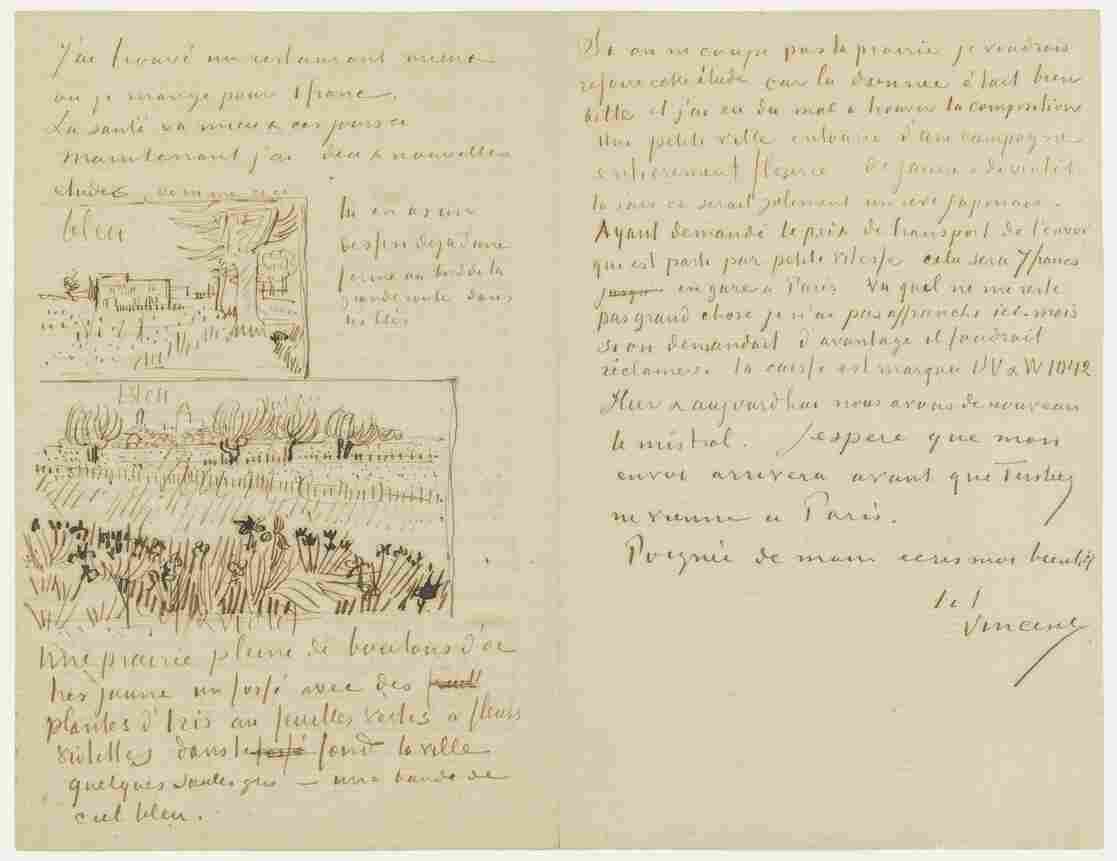 J'ai trouvé un restaurant mieux
ou je mange pour 1 franc.
La santé va mieux ces jours ci
Maintenant j'ai deux nouvelles
etudes comme ceci
bleu
tu en as un
dessin deja d'une
ferme au bord de la
grande route dans
les blés
bleu
Une prairie pleine de boutons d'or
très jaune un fossé avec des
plantes d'Iris au feuilles vertes a fleurs
violettes dans le fossé fond la ville
quelques saules gris – une bande de
ciel bleu.
Si on ne coupe pas la prairie je voudrais
refaire cette étude car la donnée était bien
belle et j'ai eu du mal a trouver la composition
Une petite ville entourée d'une campagne
entièrement fleurie de jaune & de violet
tu sais ce serait joliment un rêve japonais.
Ayant demandé le prix de transport de l'envoi
qui est parti par petite vitesse cela sera 7 francs
jusqu en gare a Paris Vu qu'il ne me reste
pas grand chose je n'ai pas affranchi ici – mais
si on demandait d'avantage il faudrait
réclamer. la caisse est marquée VV & W 1042
Hier & aujourd'hui nous avons de nouveau
le mistral. J'espère que mon
envoi arrivera avant que Tersteeg
ne vienne a Paris.
Poignée de main ecris moi bientôt
t. à t.
Vincent